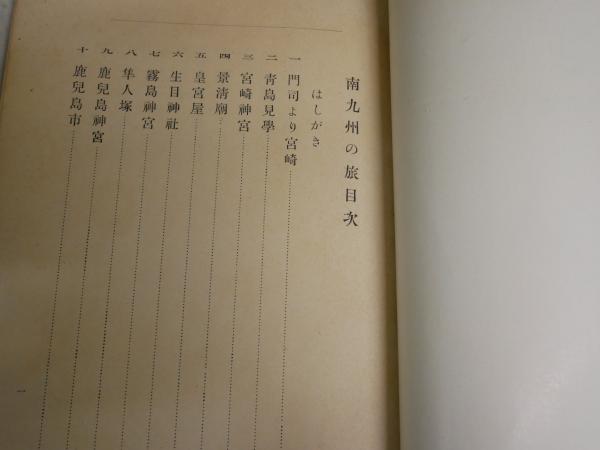 南九州の旅目次
はしがき
一 門司より宮崎
二 靑島見學
三 宮崎神宮
四 景淸廟
五 皇宮屋
六 生目神社
七 霧島神宮
八 隼人塚
九 鹿兒島神宮
十 鹿兒島市
一